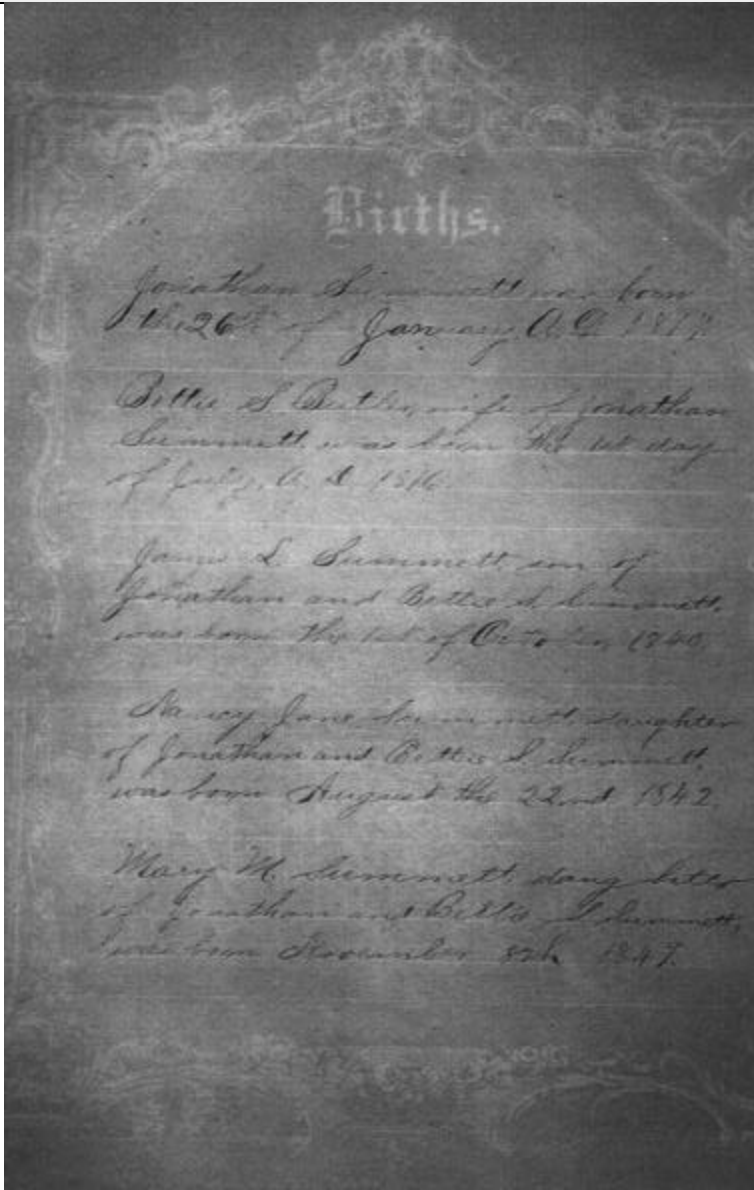 Births.
Jonathan Summett was born
the 26th of January A.D.
Bettie S Butler, wife of Jonathan
Summett, was born the 1st day
of July, A. D. 1816
James L Summett, son of
Jonathan and Bettie S. Summett,
was born the 1st of October, 1840,
Nancy Jane Summett, daughter
of Jonathan and Bettie S. Summett,
was born August the 22nd 1842.
Mary M. Summett, daughter
of Jonathan and Bettie S Summett,
was born November 1847.